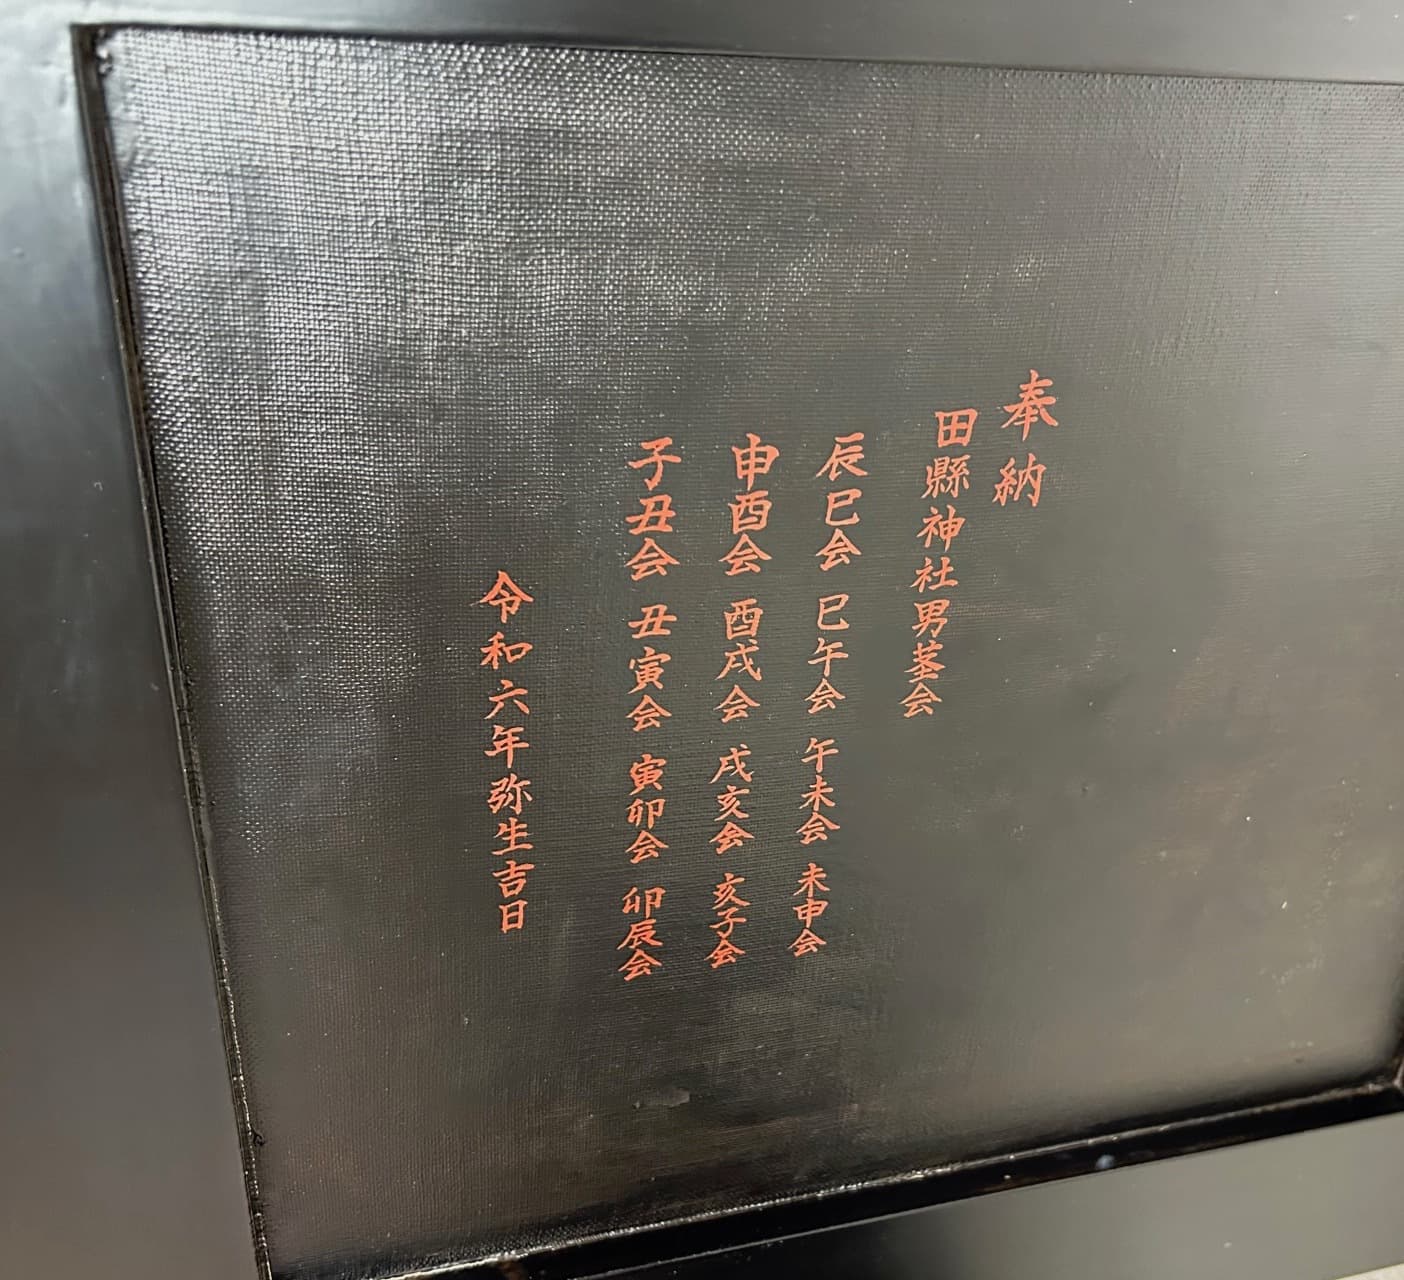 奉納
田縣神社男茎会
辰巳会 巳午会 午未会 未申会
申酉会 酉戌会 戌亥会 亥子会
子丑会 丑寅会 寅卯会 卯辰会
令和六年弥生吉日